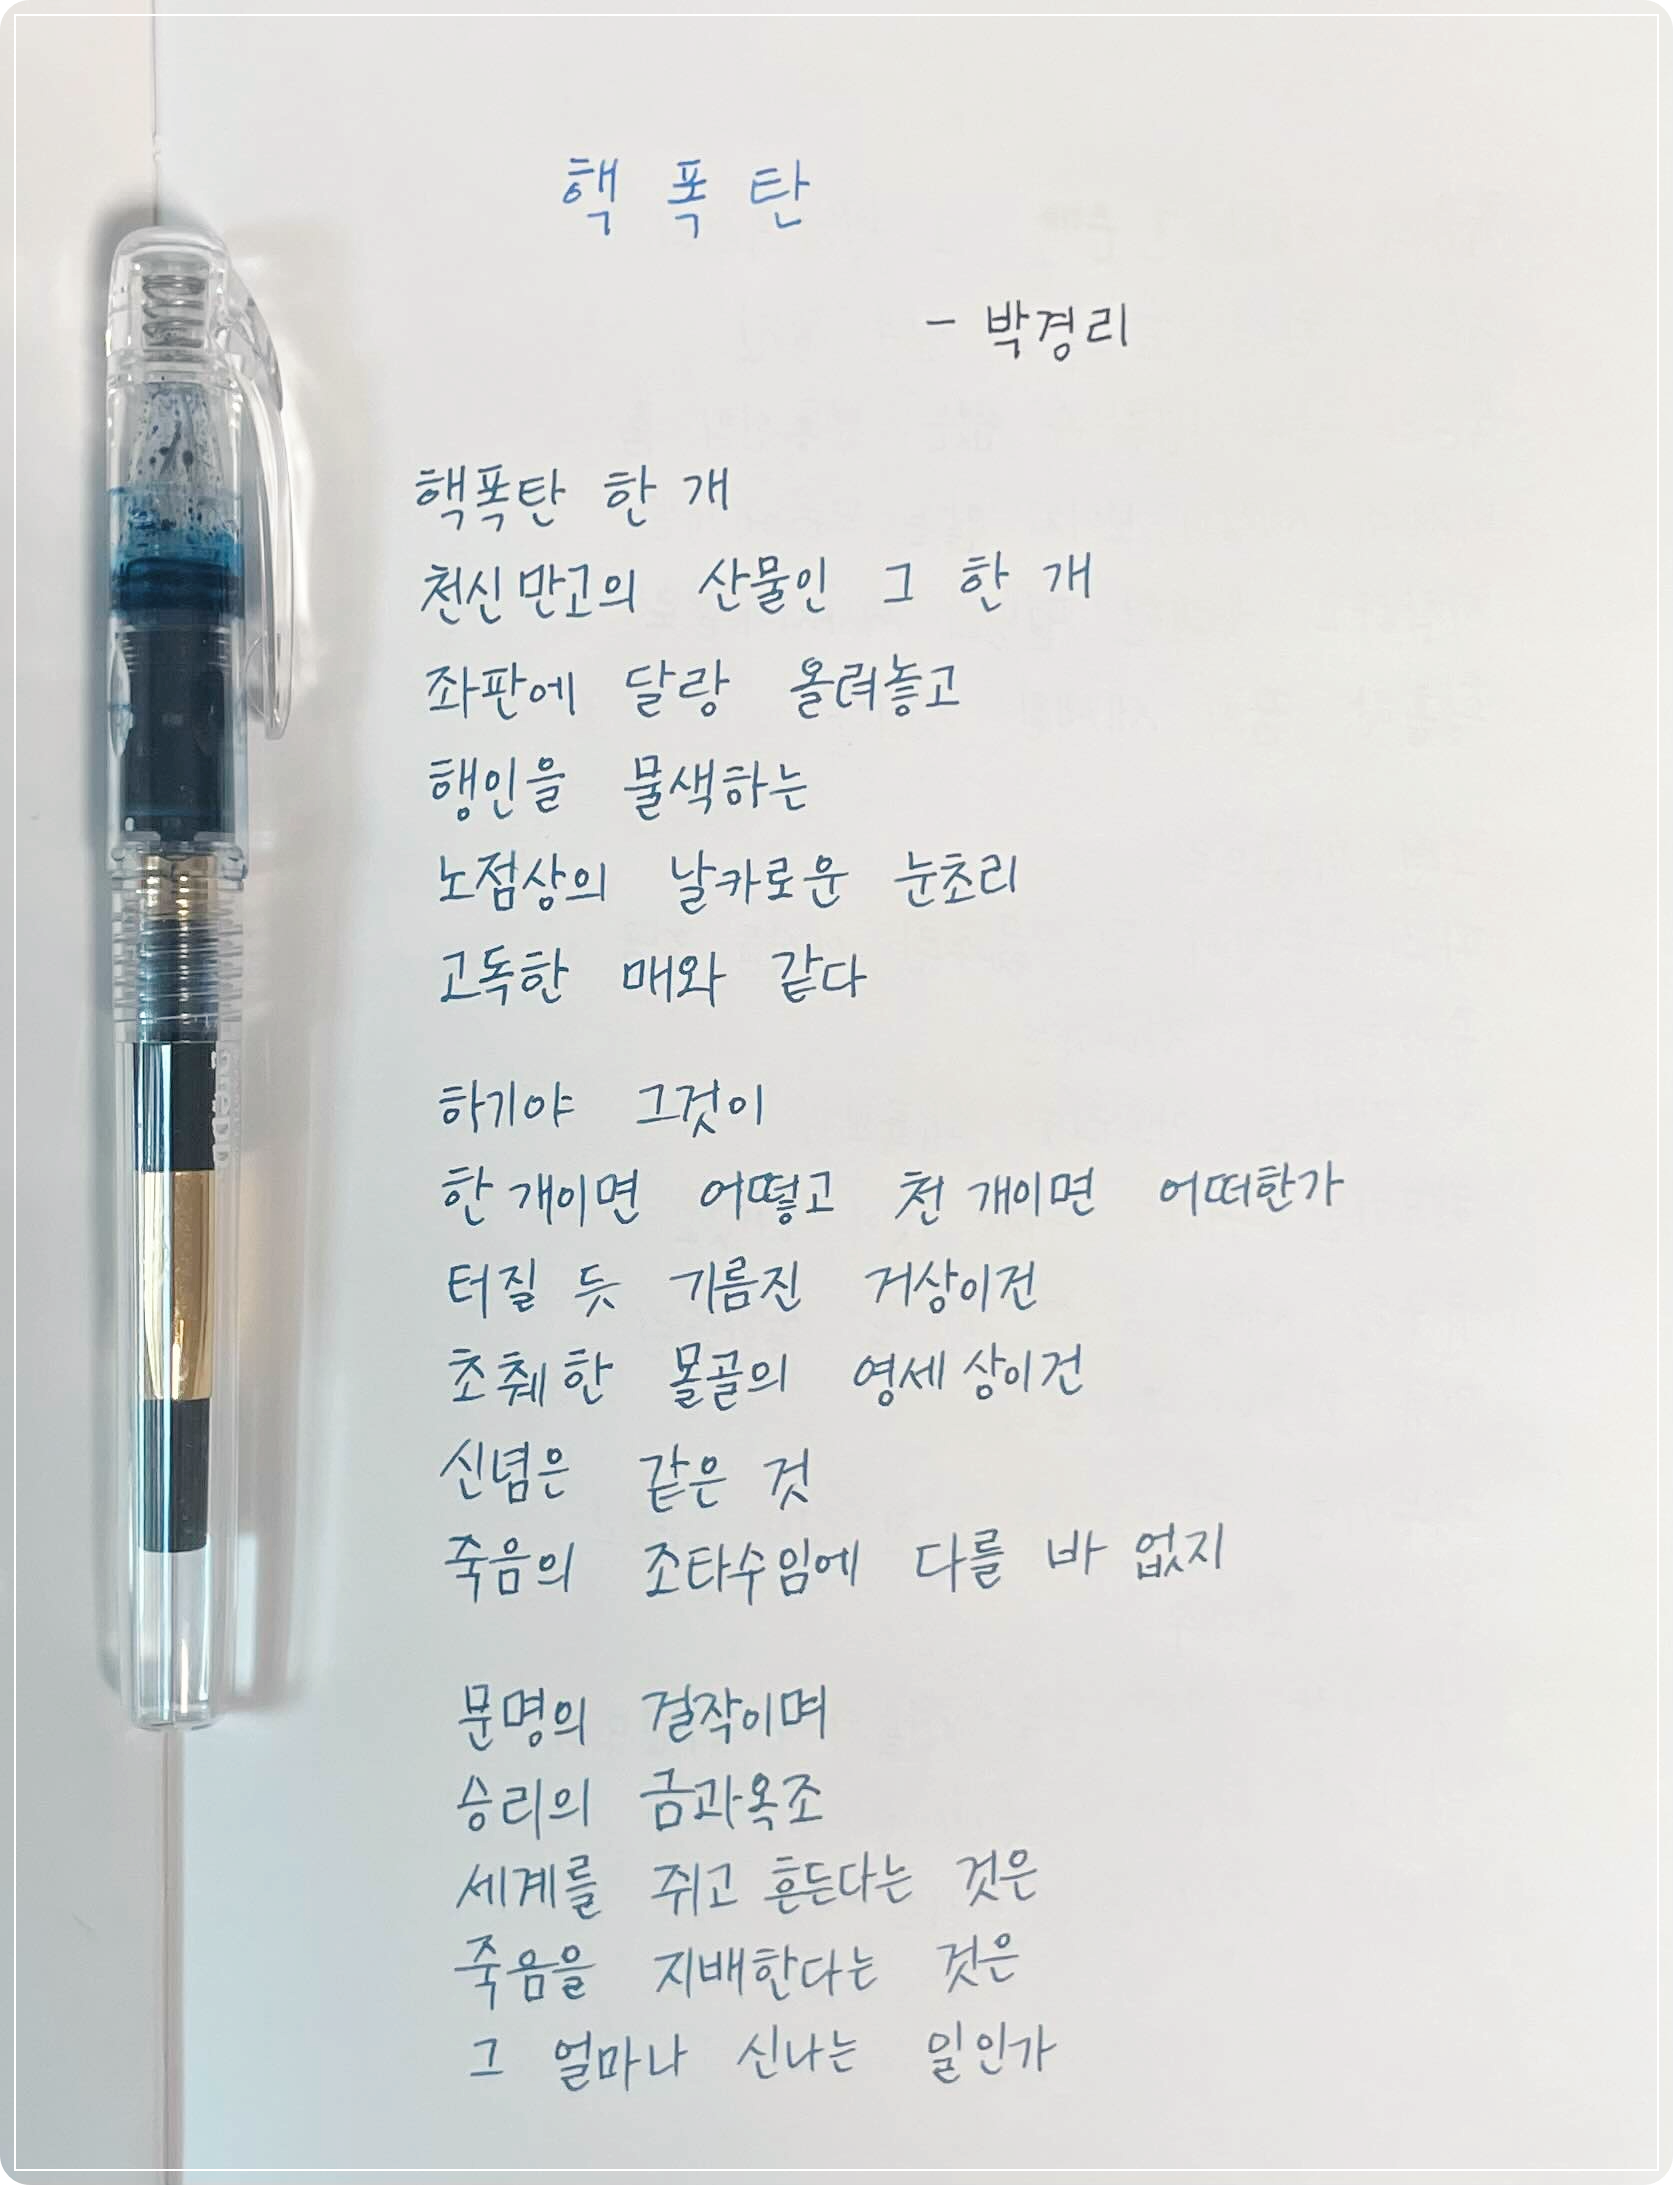 핵 폭 탄
- 박경리
핵폭탄 한 개
천신만고의 산물인 그 한 개
좌판에 달랑 올려놓고
행인을 물색하는
노점상의 날카로운 눈초리
고독한 매와 같다
하기야 그것이
한 개이면 어떻고 천 개이면 어떠한가
터질 듯 기름진 거상이건
초췌한 몰골의 영세상이건
신념은 같은 것
죽음의 조타수임에 다를 바 없지
문명의 걸작이며
승리의 금과옥조
세계를 쥐고 흔든다는 것은
죽음을 지배한다는 것은
그 얼마나 신나는 일인가